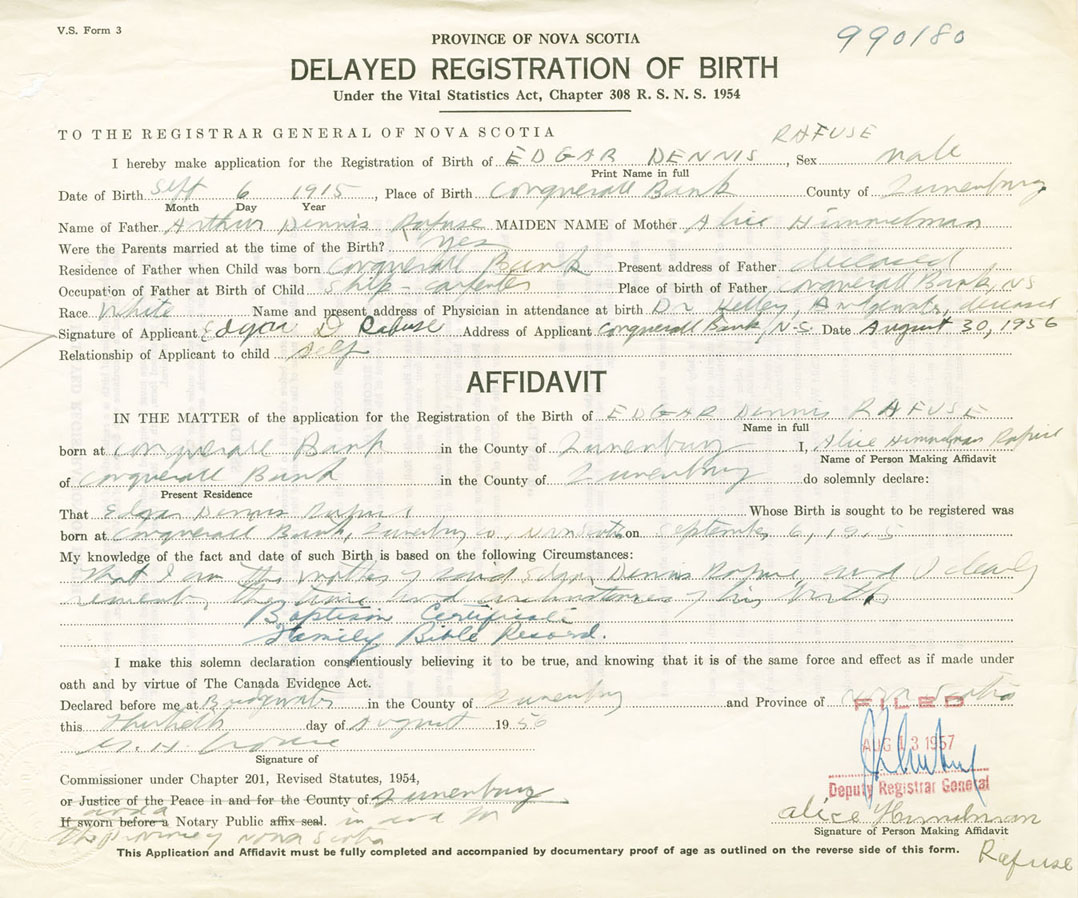 V.S. Form 3
990180
PROVINCE OF NOVA SCOTIA
DELAYED REGISTRATION OF BIRTH
Under the Vital Statistics Act, Chapter 308 R. S. N. S. 1954
TO THE REGISTRAR GENERAL OF NOVA SCOTIA
RAFUSE
I hereby make application for the Registration of Birth of EDGAR DENNIS, Sex male
Print Name in full
Date of Birth Sept 6 1915, Place of Birth Conquerall Bank County of Lunenburg
Month Day Year
Name of Father Arthur Dennis Rafuse MAIDEN NAME of Mother Alice Himmelman
Were the Parents married at the time of the Birth? Yes
Residence of Father when Child was born Conquerall Bank Present address of Father deceased
Occupation of Father at Birth of Child Ship-carpenter Place of birth of Father Conquerall Bank, NS
Race White Name and present address of Physician in attendance at birth Dr Kelley, Bridgewater, deceased
Signature of Applicant Edgar D. Rafuse Address of Applicant Conquerall Bank, N.S. Date August 30, 1956
Relationship of Applicant to child Self
AFFIDAVIT
IN THE MATTER of the application for the Registration of the Birth of EDGAR Dennis RAFUSE
Name in full
born at Conquerall Bank in the County of Lunenburg I, Alice Himmelman Rafuse
Name of Person Making Affidavit
of Conquerall Bank in the County of Lunenburg do solemnly declare:
Present Residence
That Edgar Dennis Rafuse Whose Birth is sought to be registered was
born at Conquerall Bank, Lunenburg Co. Nova Scotia on September 6, 1915
My knowledge of the fact and date of such Birth is based on the following Circumstances:
That I am the mother of said Edgar Dennis Rafuse, and I clearly
remember the time and circumstances of his birth
Baptism Certificate
Family Bible Record.
I make this solemn declaration conscientiously believing it to be true, and knowing that it is of the same force and effect as if made under
oath and by virtue of The Canada Evidence Act.
Declared before me at Bridgewater in the County of Lunenburg and Province of Nova Scotia
this thirtieth day of August 1956
FILED
AUG 13 1957
Signature of
Deputy Registrar General
Commissioner under Chapter 201, Revised Statutes, 1954,
or Justice of the Peace in and for the County of Lunenburg
If sworn before a Notary Public affix seal. in and for
the Province of Nova Scotia
Alice Himmelman
Signature of Person Making Affidavit
Rafuse
This Application and Affidavit must be fully completed and accompanied by documentary proof of age as outlined on the reverse side of this form.